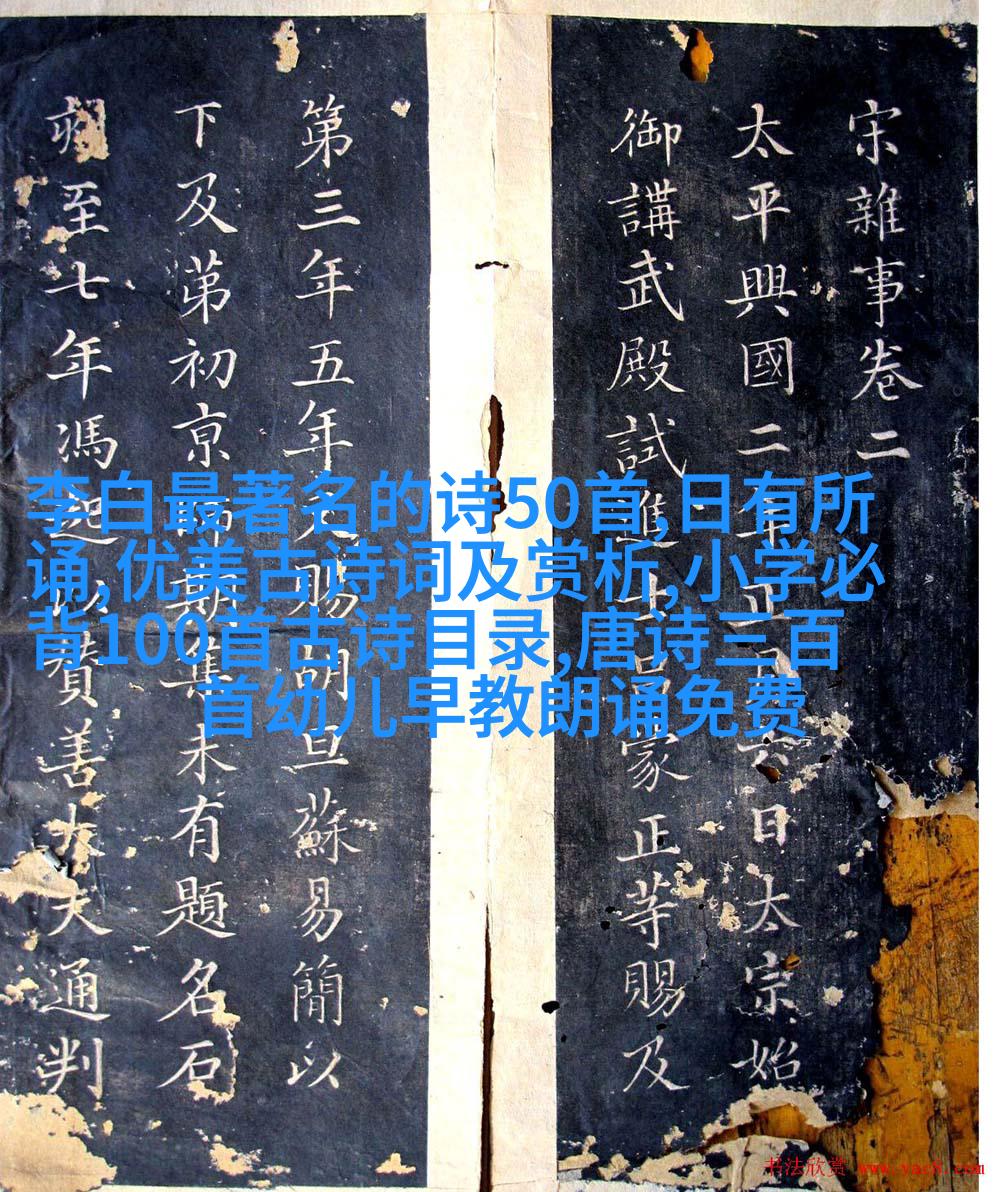 宋雜事卷二
太平興國二年正月六日太宗始
御講武殿試進士呂蒙正等賜及
第三年五年又賜胡旦蘇易簡以
下及第初京師期集未有題名石
刻至七年馮起以贊善大夫通判
李白最著名的诗50首,日有所
诵,优美古诗词及赏析,小学必
背100首古诗目录,唐诗三百
首幼儿早教朗诵免费
书法欣赏 www.yac8.com